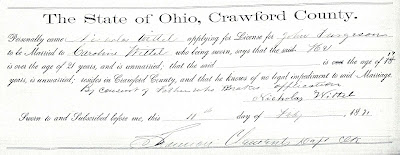 The State of Ohio, Crawford County.
Personally came Nicholas Wittel applying for License for John Furgeson
to be Married to Caroline Wittel who being sworn, says that the said he
is over the age of 21 years, and is unmarried, that the said is over the age of 18
years, is unmarried, resides in Crawford County, and that he knows of no legal impediment to said Marriage.
By consent of Father who makes application
Nicholas Wittel
Sworn to and Subscribed before me, this 11th day of Feby 187
Clements Dept Clk